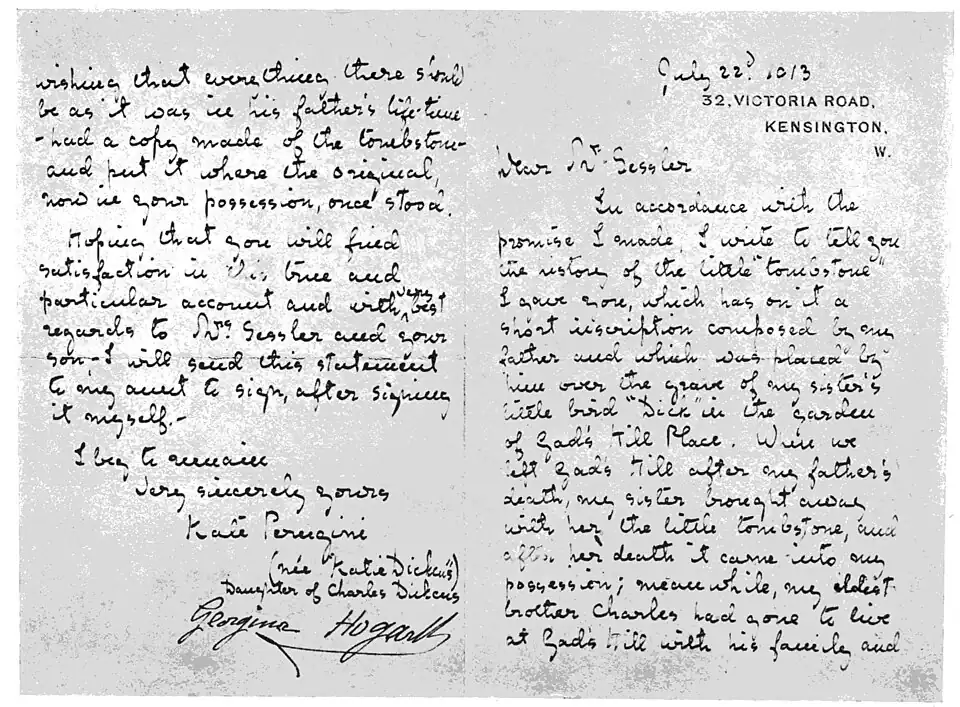 July 22ᵈ 1913
32, VICTORIA ROAD,
KENSINGTON,
W.
Dear Mʳ Sessler
In accordance with the
promise I made, I write to tell you
the history of the little "tombstone"
I gave you, which has on it a
short inscription composed by my
father and which was placed by
him over the grave of my sister's
little bird "Dick" in the garden
of Gad's Hill Place. When we
left Gad's Hill after my father's
death, my sister brought away
with her the little tombstone, and
after her death it came into my
possession; meanwhile, my eldest
brother Charles had gone to live
at Gad's Hill with his family and
wishing that everything there should
be as it was in his father's life-time
- had a copy made of the tombstone-
and put it where the original,
now in your possession, once stood.
Hoping that you will find
satisfaction in this true and
particular account and with very best
regards to Mʳˢ Sessler and your
son - I will send this statement
to my aunt to sign, after signing
it myself. -
I beg to remain
Very sincerely yours
Kate Perugini
(née "Katie Dickens")
Daughter of Charles Dickens
Georgina Hogarth